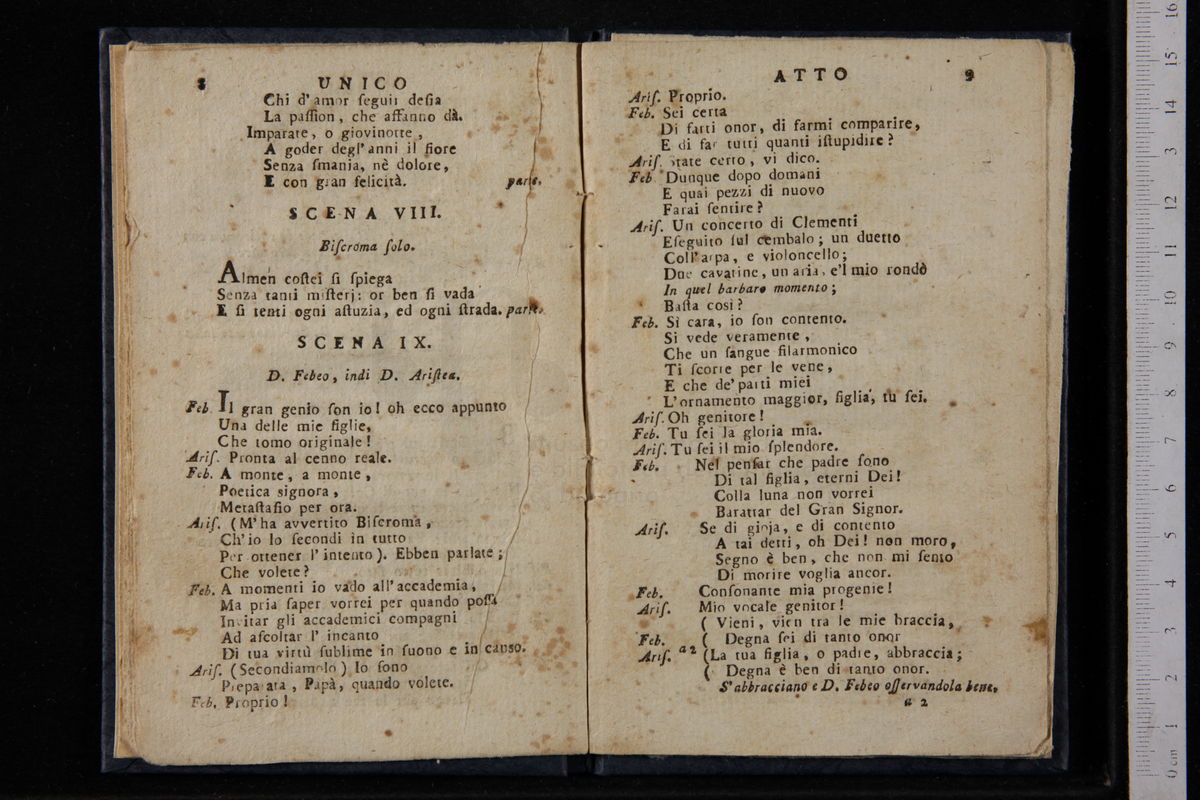 8 UNICO
Chi d'amor ſeguir deſia
La paſſion, che affanno dà.
Imparate, o giovinotte,
A goder degl'anni il fiore
Senza ſmania, nè dolore,
E con gran felicità. parte.
SCENA VIII.
Biſcroma ſolo.
Almen coſtei ſi ſpiega
Senza tanti miſterj: or ben ſi vada
E ſi tenti ogni aſtuzia, ed ogni ſtrada. parte.
SCENA IX.
D. Febeo, indi D. Ariſtea.
Feb. Il gran genio ſon io! oh ecco appunto
Una delle mie figlie,
Che tomo originale!
Ariſ. Pronta al cenno reale.
Feb. A monte, a monte,
Poetica signora,
Metaſtaſio per ora.
Ariſ. (M'ha avvertito Biſcroma,
Ch'io lo ſecondi in tutto
Per ottener l'intento). Ebben parlate;
Che volete?
Feb. A momenti io vado all'accademia,
Ma pria ſaper vorrei per quando poſſa
Invitar gli accademici compagni
Ad aſcoltar l' incanto
Di tua virtù ſublime in ſuono e in cauſo.
Ariſ. (Secondiamolo) Io ſono
Preparata, Papà, quando volete.
Feb. Proprio!
ATTO 9
Ariſ. Proprio.
Feb. Sei certa
Di farti onor, di farmi comparire,
E di far tutti quanti iſtupidire?
Ariſ. State certo, vi dico.
Feb Dunque dopo domani
E quai pezzi di nuovo
Farai ſentire?
Ariſ. Un concerto di Clementi
Eſeguito ſul cembalo; un duetto
Coll'arpa, e violoncello;
Due cavatine, un aria, e'l mio rondò
In quel barbaro momento;
Baſta così?
Feb. Sì cara, io ſon contento.
Si vede veramente,
Che un ſangue filarmonico
Ti ſcorre per le vene,
E che de'parti miei
L'ornamento maggior, figlia, tu ſei.
Ariſ. Oh genitore!
Feb. Tu ſei la gloria mia.
Ariſ. Tu ſei il mio ſplendore.
Feb. Nel penſar che padre ſono
Di tal figlia, eterni Dei!
Colla luna non vorrei
Barattar del Gran Signor.
Ariſ. Se di gioja, e di contento
A tai detti, oh Dei! non moro,
Segno è ben, che non mi ſento
Di morire voglia ancor.
Feb. Conſonante mia progenie!
Ariſ. Mio vocale genitor!
( Vieni, vien tra le mie braccia,
Feb. ( Degna ſei di tanto onor
Ariſ. a2 (La tua figlia, o padre, abbraccia;
( Degna è ben di tanto onor.
S'abbracciano e D. Febeo oſſervandola bene,
a 2
0 cm 1 2 3 4 5 6 7 8 9 10 11 12 13 14 15 16